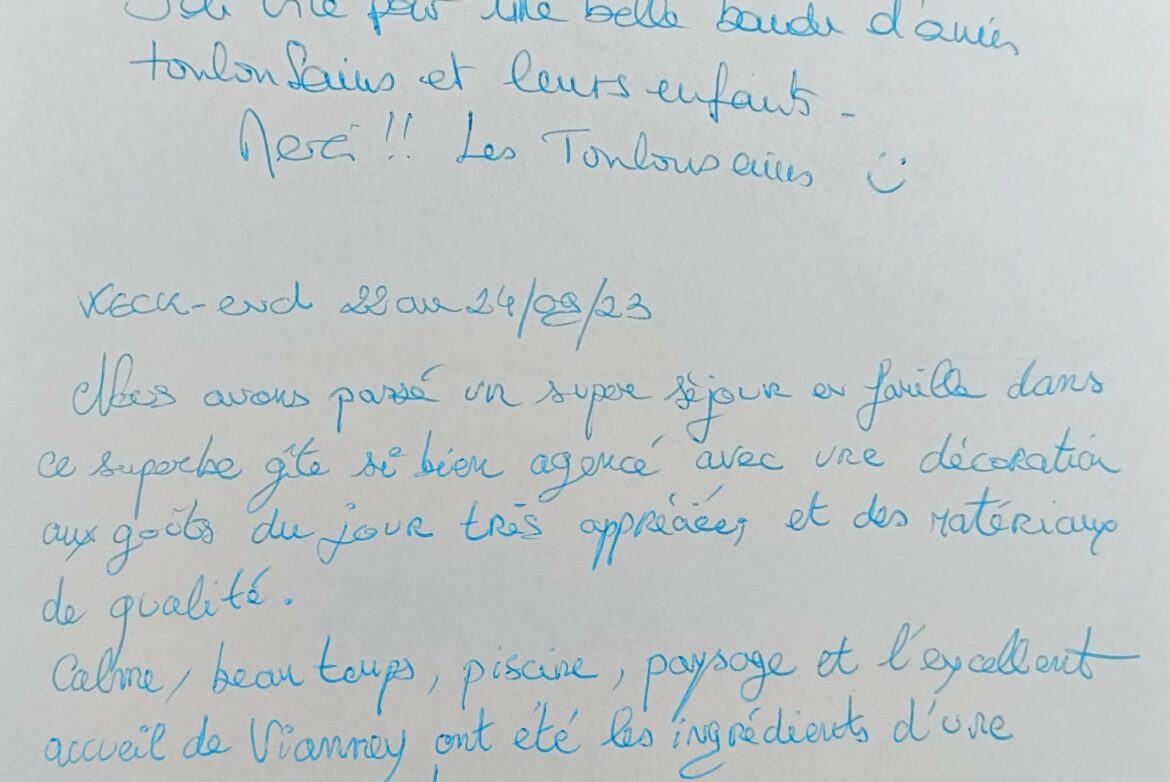 pour une belle bande d'amis
toulousains et leurs enfants.
Merci !! Les Toulousains :)
Week-end 22 au 24/09/23
Nous avons passé un super séjour en famille dans
ce superbe gîte si bien agencé avec une décoration
aux goûts du jour très appréciée, et des matériaux
de qualité.
Calme, beau temps, piscine, paysage et l'excellent
accueil de Vianney ont été les ingrédients d'une